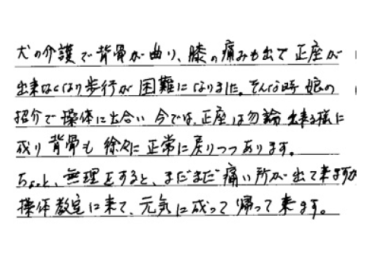 犬の介護で背骨が曲り、膝の痛みも出て正座が
出来なくなり歩行が困難になりました。そんな時娘の
紹介で操体に出合い今では、正座は勿論出来る様に
成り背骨も徐々に正常に戻りつつあります。
ちょっと、無理をすると、まだまだ痛い所が出て来ますが
操体教室に来て、元気に成って帰って来ます。